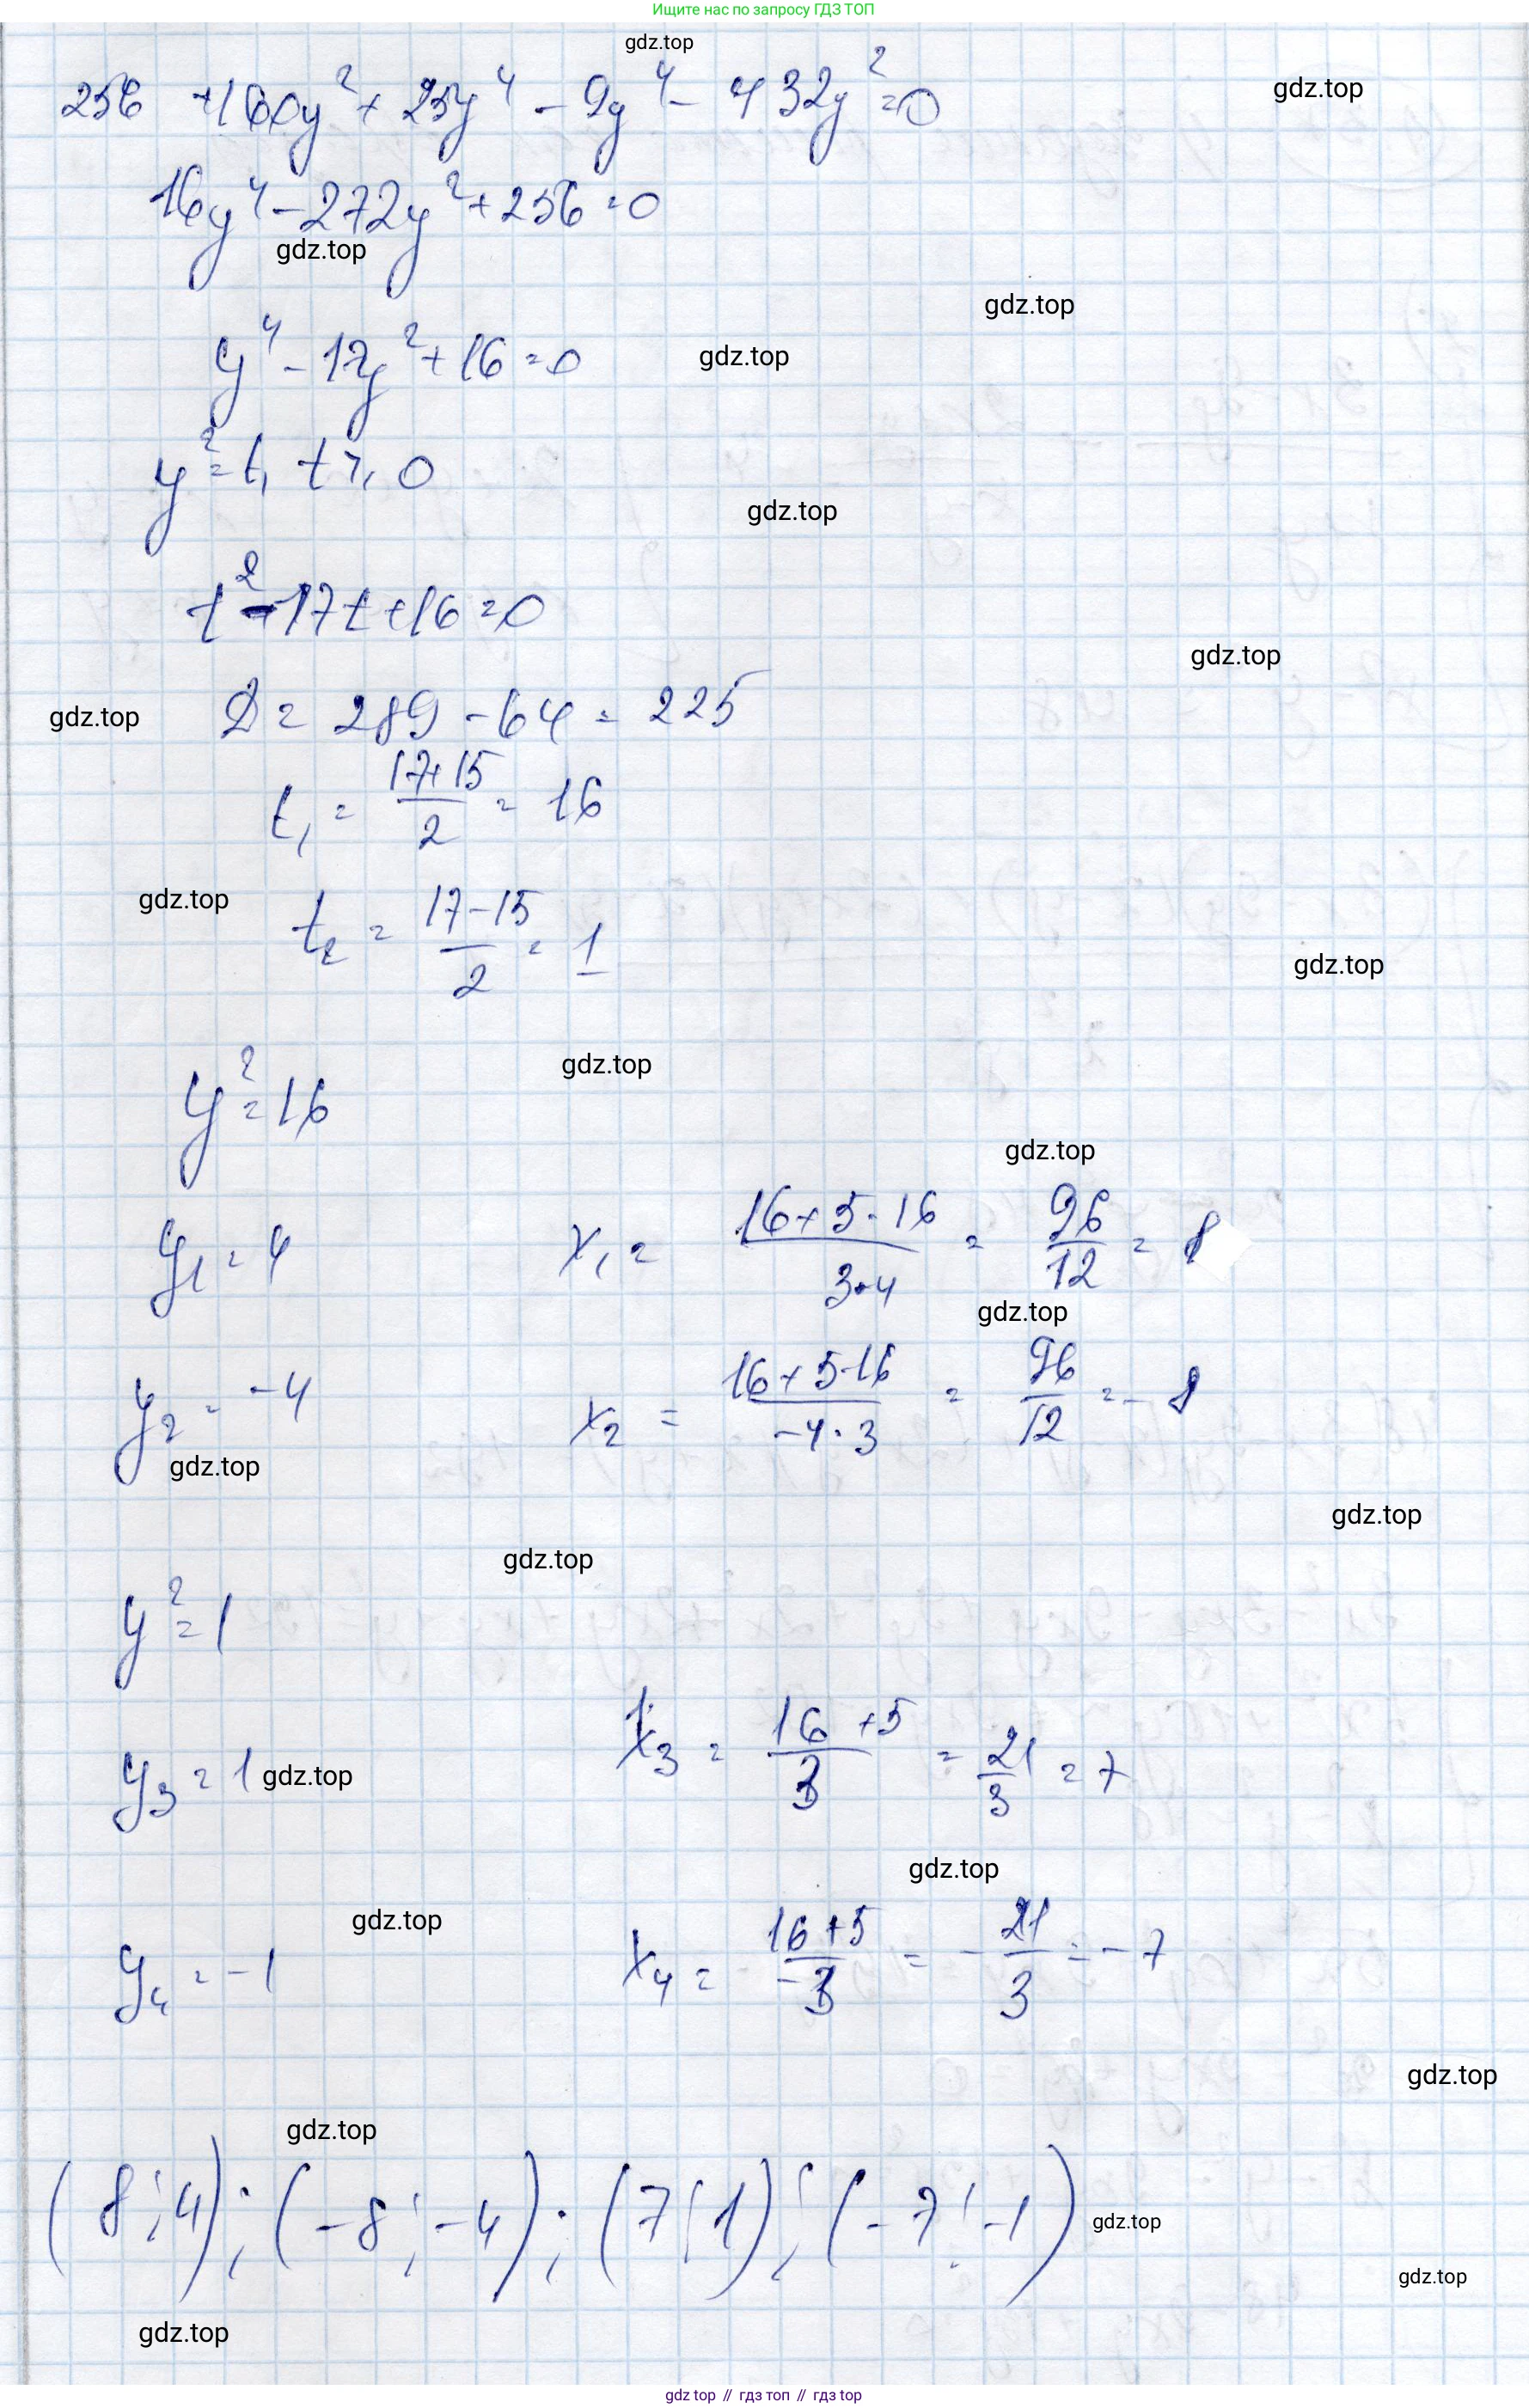 Ищите нас по запросу ГДЗ ТОП
gdz.top
256 + 160y² + 25y⁴ - 9y⁴ - 432y² = 0
gdz.top
16y⁴ - 272y² + 256 = 0
gdz.top
gdz.top
y⁴ - 17y² + 16 = 0
gdz.top
y² = t, t ⩾ 0
gdz.top
t² - 17t + 16 = 0
gdz.top
gdz.top
D = 289 - 64 = 225
t₁ = (17+15)/2 = 16
gdz.top
t₂ = (17-15)/2 = 1
gdz.top
gdz.top
y² = 16
gdz.top
y₁ = 4 x₁ = (16+5·16)/(3·4) = 96/12 = 8
gdz.top
y₂ = -4 x₂ = (16+5·16)/(-4·3) = 96/12 = -8
gdz.top
gdz.top
gdz.top
y² = 1
y₃ = 1 gdz.top x₃ = (16+5)/3 = 21/3 = 7
gdz.top
gdz.top
y₄ = -1 x₄ = (16+5)/(-3) = -21/3 = -7
gdz.top
gdz.top
(8; 4); (-8; -4); (7; 1); (-7; -1)
gdz.top
gdz.top
gdz.top
gdz top // гдз топ // гдз top